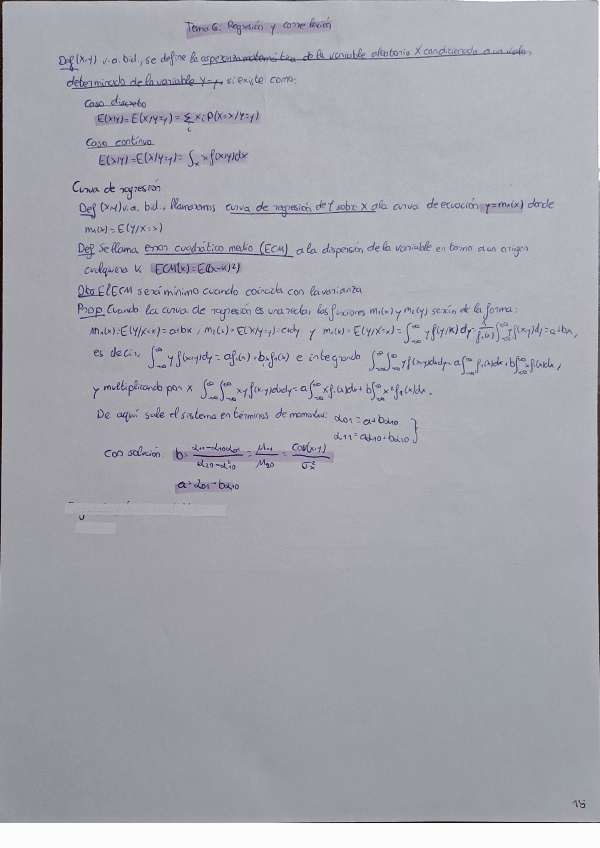 Tema 6: Regresión y correlación
Def (X,Y) v.a. bid., se define la esperanza matemática de la variable aleatoria X condicionada a un valor
determinado de la variable Y=y, si existe como:
Caso discreto
E(X/Y)=E(X/Y=y)=∑ᵢ xᵢ P(X=x/Y=y)
Caso continuo
E(X/Y)=E(X/Y=y)=∫ₓ x f(x/y)dx
Curva de regresión
Def (X,Y) v.a. bid., llamaremos curva de regresión de Y sobre X a la curva de ecuación y=m₁(x) donde
m₁(x)=E(Y/X=x)
Def Se llama error cuadrático medio (ECM) a la dispersión de la variable en torno a un origen
cualquiera K ECM(X)=E((X-K)²)
Obs El ECM será mínimo cuando coincida con la varianza
Prop Cuando la curva de regresión es una recta, las funciones m₁(x) y m₂(y) serán de la forma:
m₁(x)=E(Y/X=x)=a+bx, m₂(y)=E(X/Y=y)=c+dy y m₁(x)=E(Y/X=x)=∫_{-∞}^{∞} y f(y/x)dy=1/f₁(x) ∫_{-∞}^{∞} y f(x,y)dy=a+bx,
es decir, ∫_{-∞}^{∞} y f(x,y)dy=a f₁(x)+bx f₁(x) e integrando ∫_{-∞}^{∞} ∫_{-∞}^{∞} y f(x,y)dxdy=a∫_{-∞}^{∞} f₁(x)dx+b∫_{-∞}^{∞} x f₁(x)dx,
y multiplicando por x ∫_{-∞}^{∞} ∫_{-∞}^{∞} xy f(x,y)dxdy=a∫_{-∞}^{∞} x f₁(x)dx+b∫_{-∞}^{∞} x² f₁(x)dx.
De aquí sale el sistema en términos de momentos: α₀₁=a+bα₁₀
α₁₁=aα₁₀+bα₂₀ }
Con solución: b=(α₁₁-α₁₀α₀₁)/(α₂₀-α²₁₀)=μ₁₁/μ₂₀=Cov(X,Y)/σₓ²
a=α₀₁-bα₁₀
18